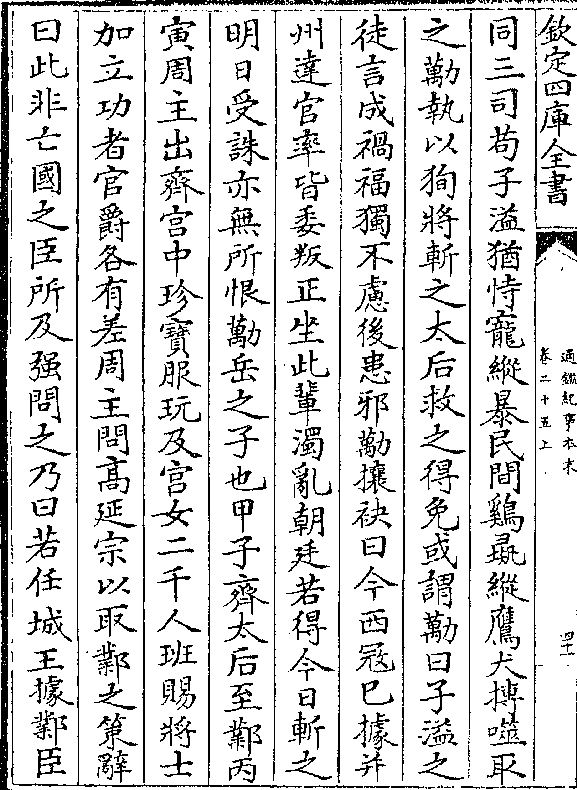 欽定四庫全書
通鑑紀事本末
卷二十五上
四十一
同三司苟子溢猶恃寵縱暴民間鷄彘縱鷹犬搏噬取
之勱執以狥將斬之太后救之得免或謂勱曰子溢之
徒言成禍福獨不慮後患邪勱攘袂曰今西冦已據并
州達官率皆委叛正坐此輩濁亂朝廷若得今日斬之
明日受誅亦無所恨勱岳之子也甲子齊太后至鄴丙
寅周主出齊宫中珍寶服玩及宫女二千人班賜將士
加立功者官爵各有差周主問髙延宗以取鄴之策辭
曰此非亡國之臣所及强問之乃曰若任城王據鄴臣